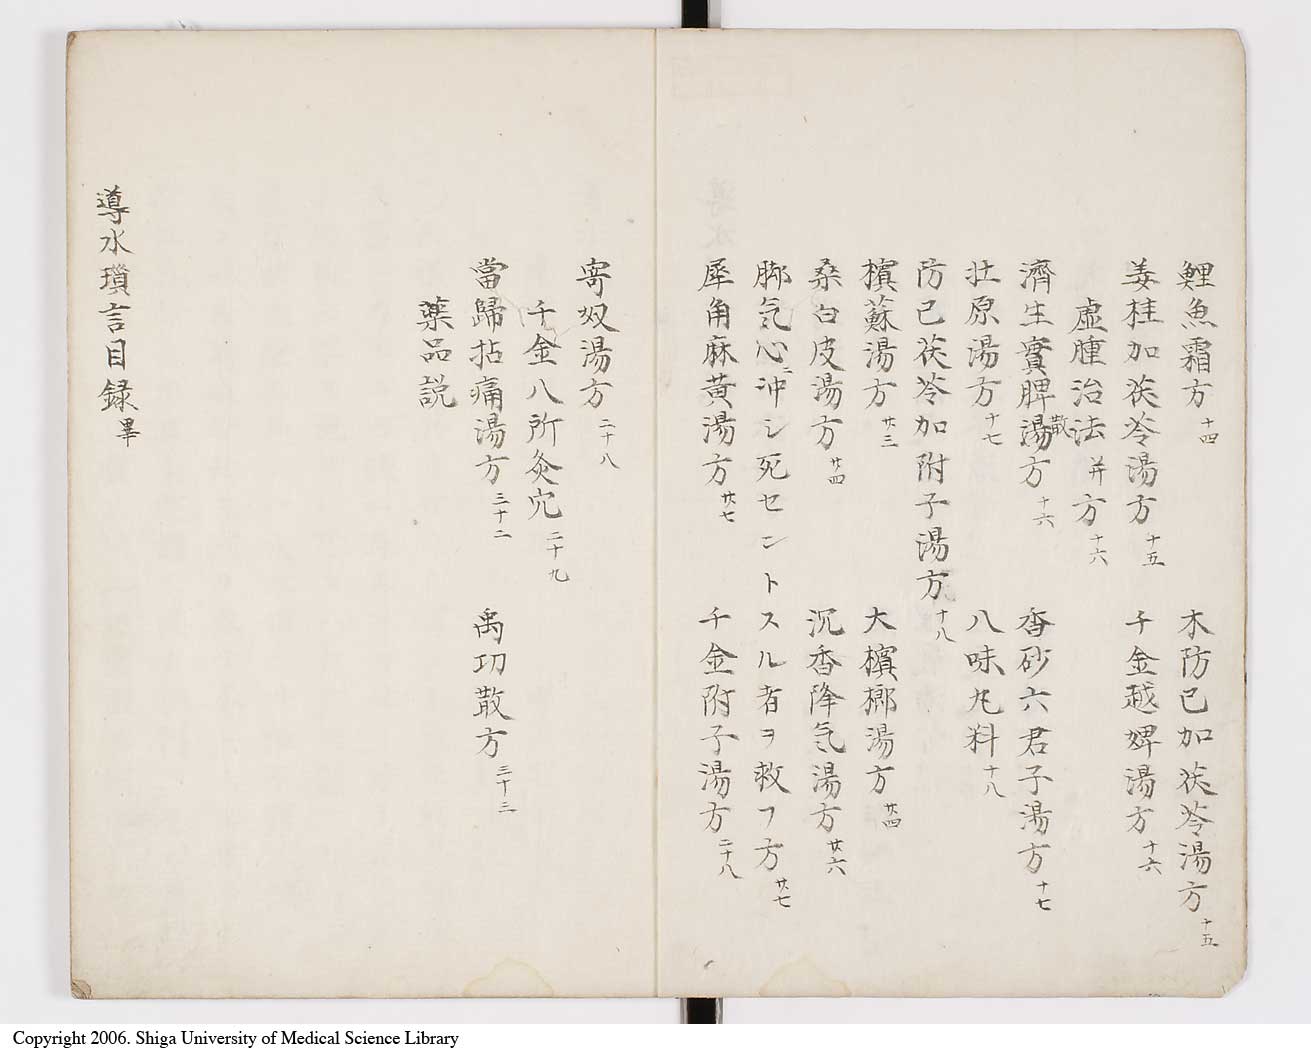 鯉魚霜方 十四　木防已加茯苓湯方 十五
姜桂加茯苓湯方 十五　千金越婢湯方 十六
虚腫治法并方 十六
濟生實脾湯方 散 十六　香砂六君子湯方 十七
壮原湯方 十七　八味丸料 十八
防已茯苓加附子湯方 十八
檳蘇湯方 廿三　大檳榔湯方 廿四
桑白皮湯方 廿四　沉香降気湯方 廿六
脚気心ニ沖シ死セントスル者ヲ救フ方 廿七
犀角麻黄湯方 廿七　千金附子湯方 二十八
寄奴湯方 二十八
千金八所灸穴 二十九
當歸拈痛湯方 三十二　禹功散方 三十三
薬品説
導水瑣言目録 畢
Copyright 2006. Shiga University of Medical Science Library